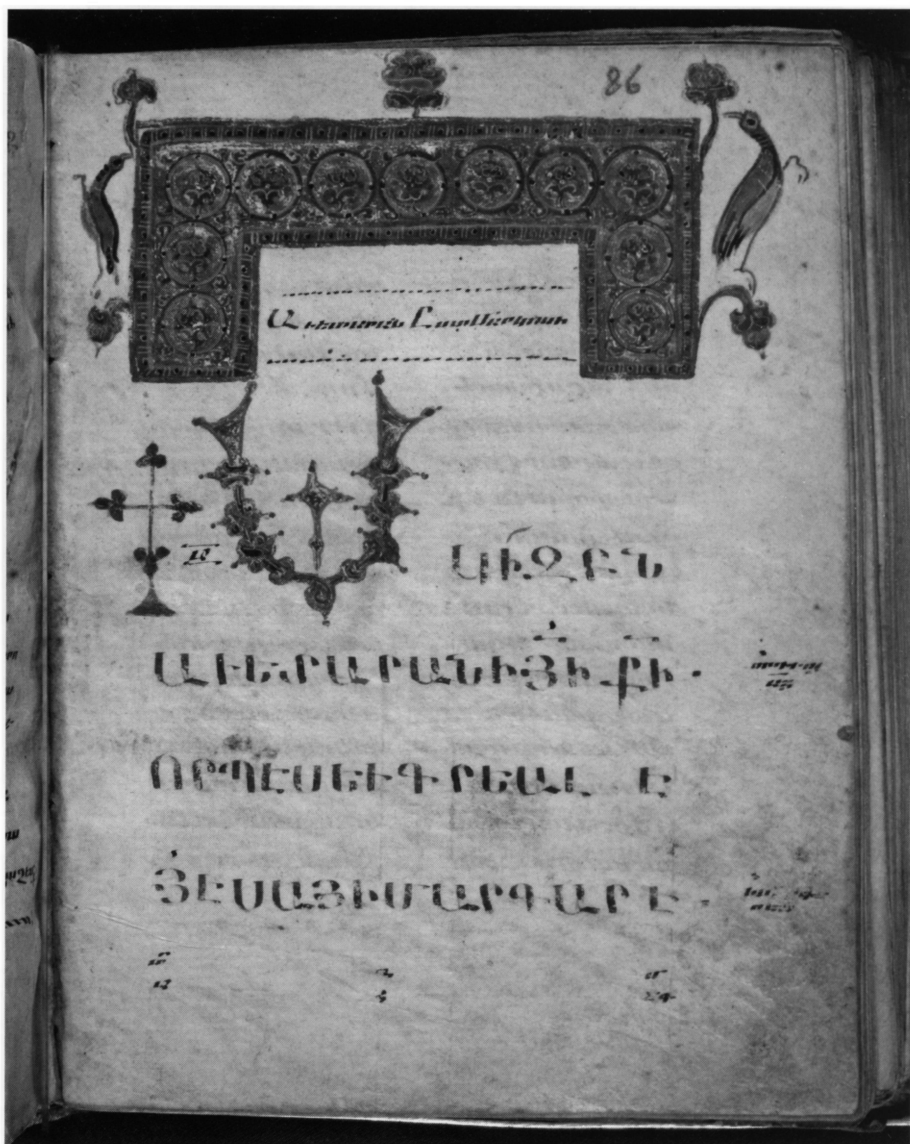 86
Աւետարան Ըստ Մարկոսի
ՍԿԻԶԲՆ
ԱՒԵՏԱՐԱՆԻ ՅԻ ՔԻ ·
ՈՐՊԷՍ ԵՒ ԳՐԵԱԼ Է
ՅԷՍԱՅԻ ՄԱՐԳԱՐԷ ·